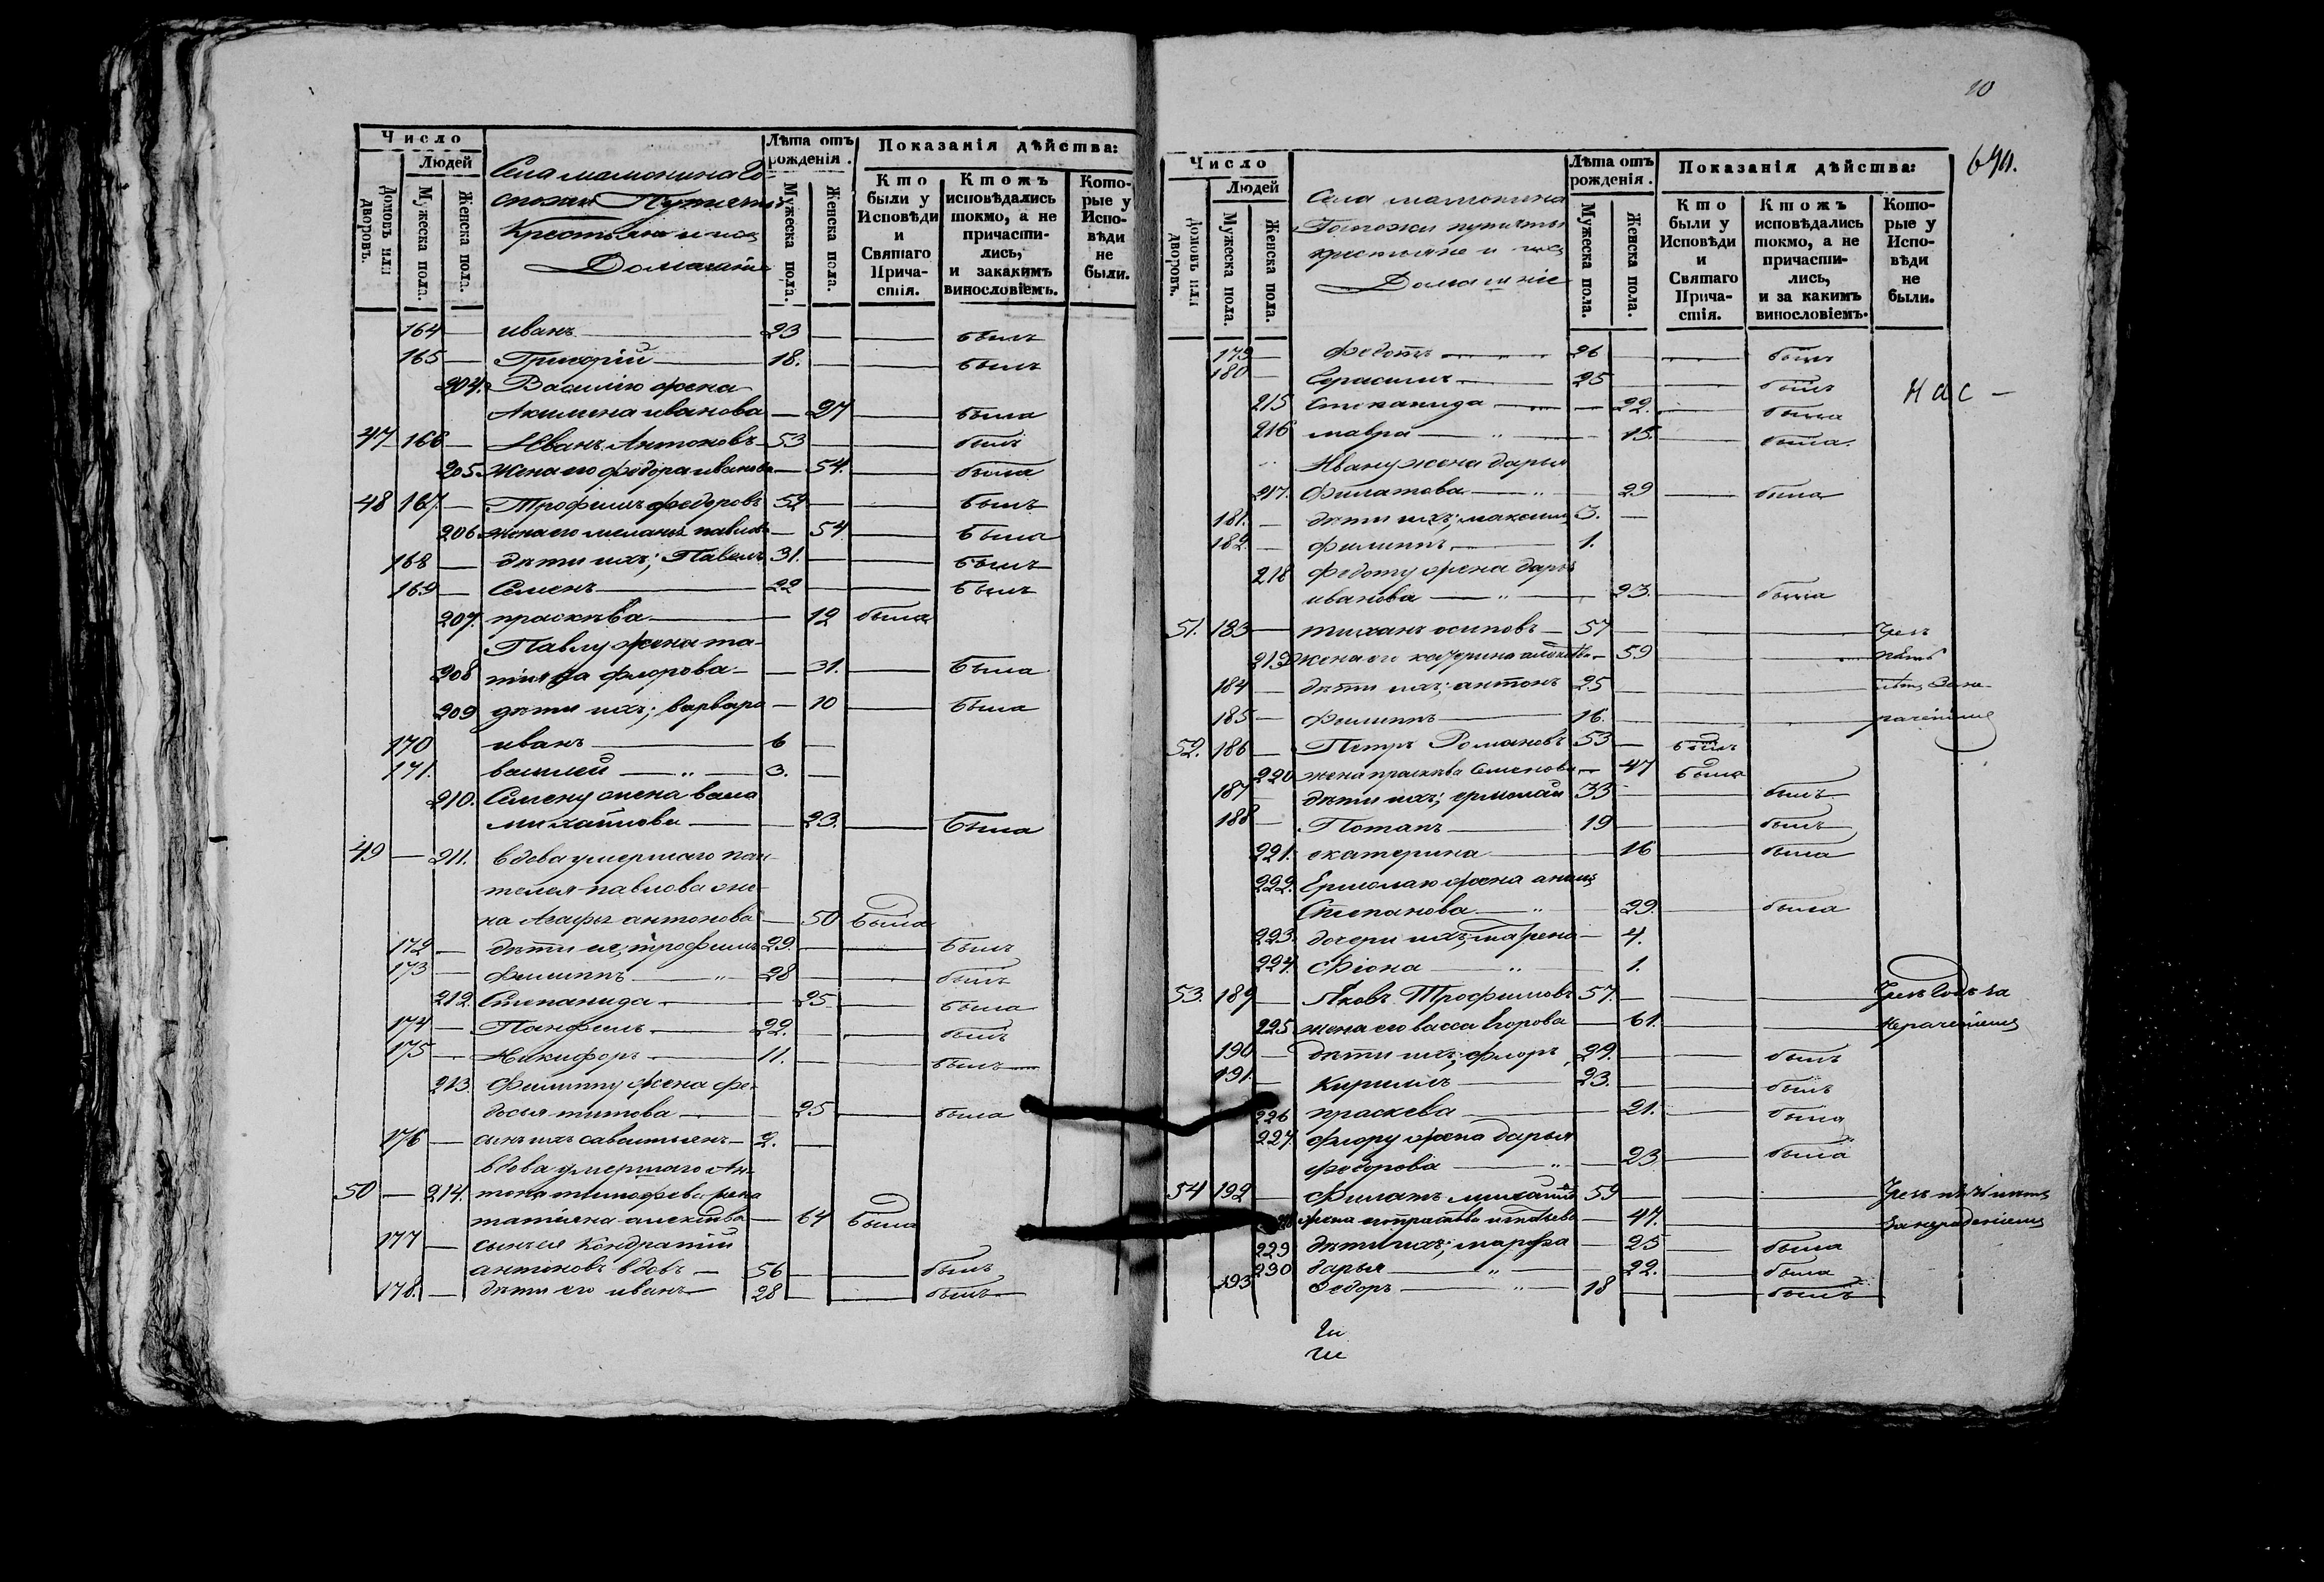 Число
Людей
Домовъ или дворовъ.
Мужеска пола.
Женска пола.
Села мамонина Го-
спожи Путяты
Крестьяне и ихъ
Домашніе
Лѣта отъ рожденія.
Мужеска пола.
Женска пола.
Показанія дѣйства:
Кто были у Исповѣди и Святаго Прича-стія.
Ктожъ исповѣдались токмо, а не причасти-лись, и закакимъ винословіемъ.
Кото-рые у Испо-вѣди не были.
164 — иванъ — 23 — — былъ
165 — Григорій — 18. — — былъ
204. Василію жена
Акилина иванова — 27 — была
47 166 — Иванъ Антоновъ 53 — — былъ
205. Жена его федора иванова — 54. — была
48 167. — Трофимъ федоровъ 52 — — былъ
206 жена его меланья павлова — 54. — была
168 — дѣти ихъ; Павелъ 31. — — былъ
169 — Семенъ — 22 — — былъ
207. прасковья — 12 была
Павлу жена та-
208 тіяна флорова — 31. — была
209 дѣти ихъ; варвара — 10 — была
170 иванъ — 6 —
171. василей — „ — 3. —
210. Семену жена васа
михайлова — 23. — была
49 — 211. вдова умершаго пан-
телея павлова же-
на Агафья антонова — 50 была
172 — дѣти ея; трофимъ 29. — — былъ
173 — филиппъ — „ 28 — — былъ
212. Степанида — 25 — была
174 — Панфилъ — 22. — былъ
175 — Никифоръ — 11. — былъ —
213. Филиппу жена фе-
досья титова — 25 — была
176 — сынъ ихъ савастьянъ — 2. —
вдова умершаго Ан-
50 — 214. тона тимофеева жена
татіяна алексѣева — 64 была
177 — сынъ ея Кондратій
антоновъ вдовъ — 56 — — былъ
178. — дѣти его иванъ — 28 — — былъ
10
Число
Людей
Домовъ или дворовъ.
Мужеска пола.
Женска пола.
Села мамонина
Госпожи путяты
крестьяне и ихъ
Домашніе
Лѣта отъ рожденія.
Мужеска пола.
Женска пола.
Показанія дѣйства:
Кто были у Исповѣди и Святаго Прича-стія.
Ктожъ исповѣдались токмо, а не причасти-лись, и за какимъ винословіемъ.
Кото-рые у Испо-вѣди не были.
179 — федотъ — 26 — — былъ
180 — Герасимъ — 25 — — былъ
215 Степанида — 22. — была
216 мавра — „ — 15. — была.
Ивану жена дарья
217. Филатова — „ — 29 — была
181. — дѣти ихъ; максимъ 3. —
182. — филиппъ — 1.
218 федоту жена дарья
иванова — „ — 23. — была
51. 183 — тихонъ осиповъ — 57 — — — чрез
219 жена его катерина — 59 — —
184 — дѣти ихъ; антонъ 25 — —
185 — филиппъ — 16. — —
52. 186 — Петръ Романовъ 53 — былъ
220 жена прасковья Семенова — 47 была
187 дѣти ихъ; ермолай 33 — — былъ
188 — Потапъ — 19 — — былъ
221. екатерина — 16 — была
222. Ермолаю жена анна
Степанова — „ — 29. — была
223. дочери ихъ; матрена — 4.
224. Фіона — „ — 1.
53. 189 — Яковъ Трофимовъ 57. — — — Чрезъ годъ за
225 жена его васса Егорова — 61. — — нераченіемъ
190 — дѣти ихъ; флоръ 29. — — былъ
191. — Кирилъ — 23. — — былъ
226 праскева — 21. — была
227. флору жена дарья
федорова — „ — 23 — была
54 192 — Филатъ михайловъ 59 — — —
жена его — 47. — —
229 дѣти ихъ; марфа — 25 — была
230 дарья — „ — 22. — была
193 Федоръ — „ 18 — — былъ